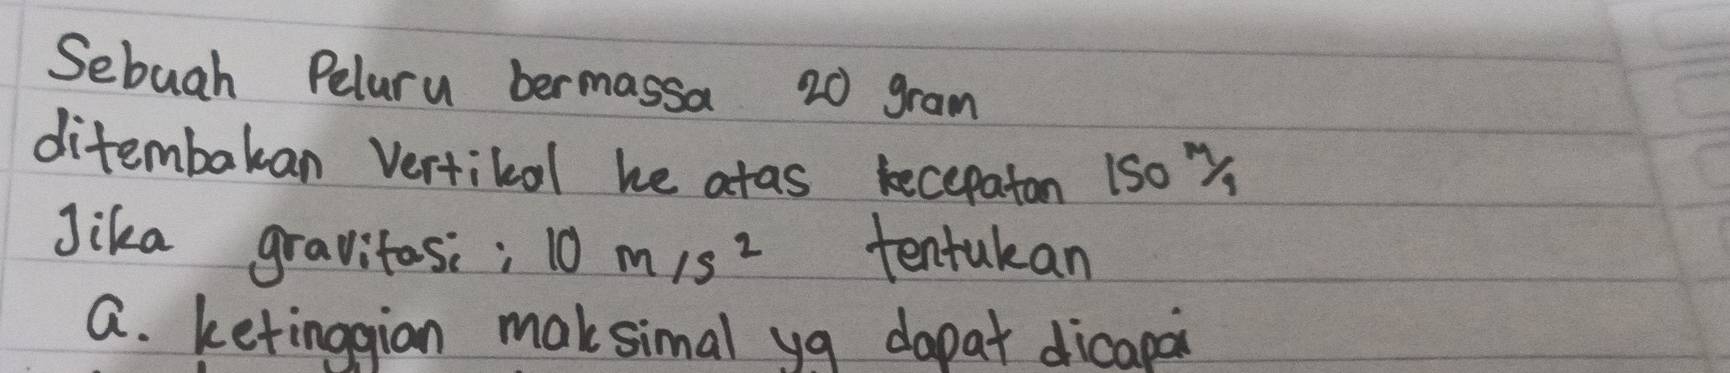 Sebuah Peluru bermassa 20 gram
ditembakan Vertikal ke atas kecepatan 150 m/s
Jika gravitasi : 10 m/s²   tentukan
a. ketinggian maksimal yg dapat dicapai